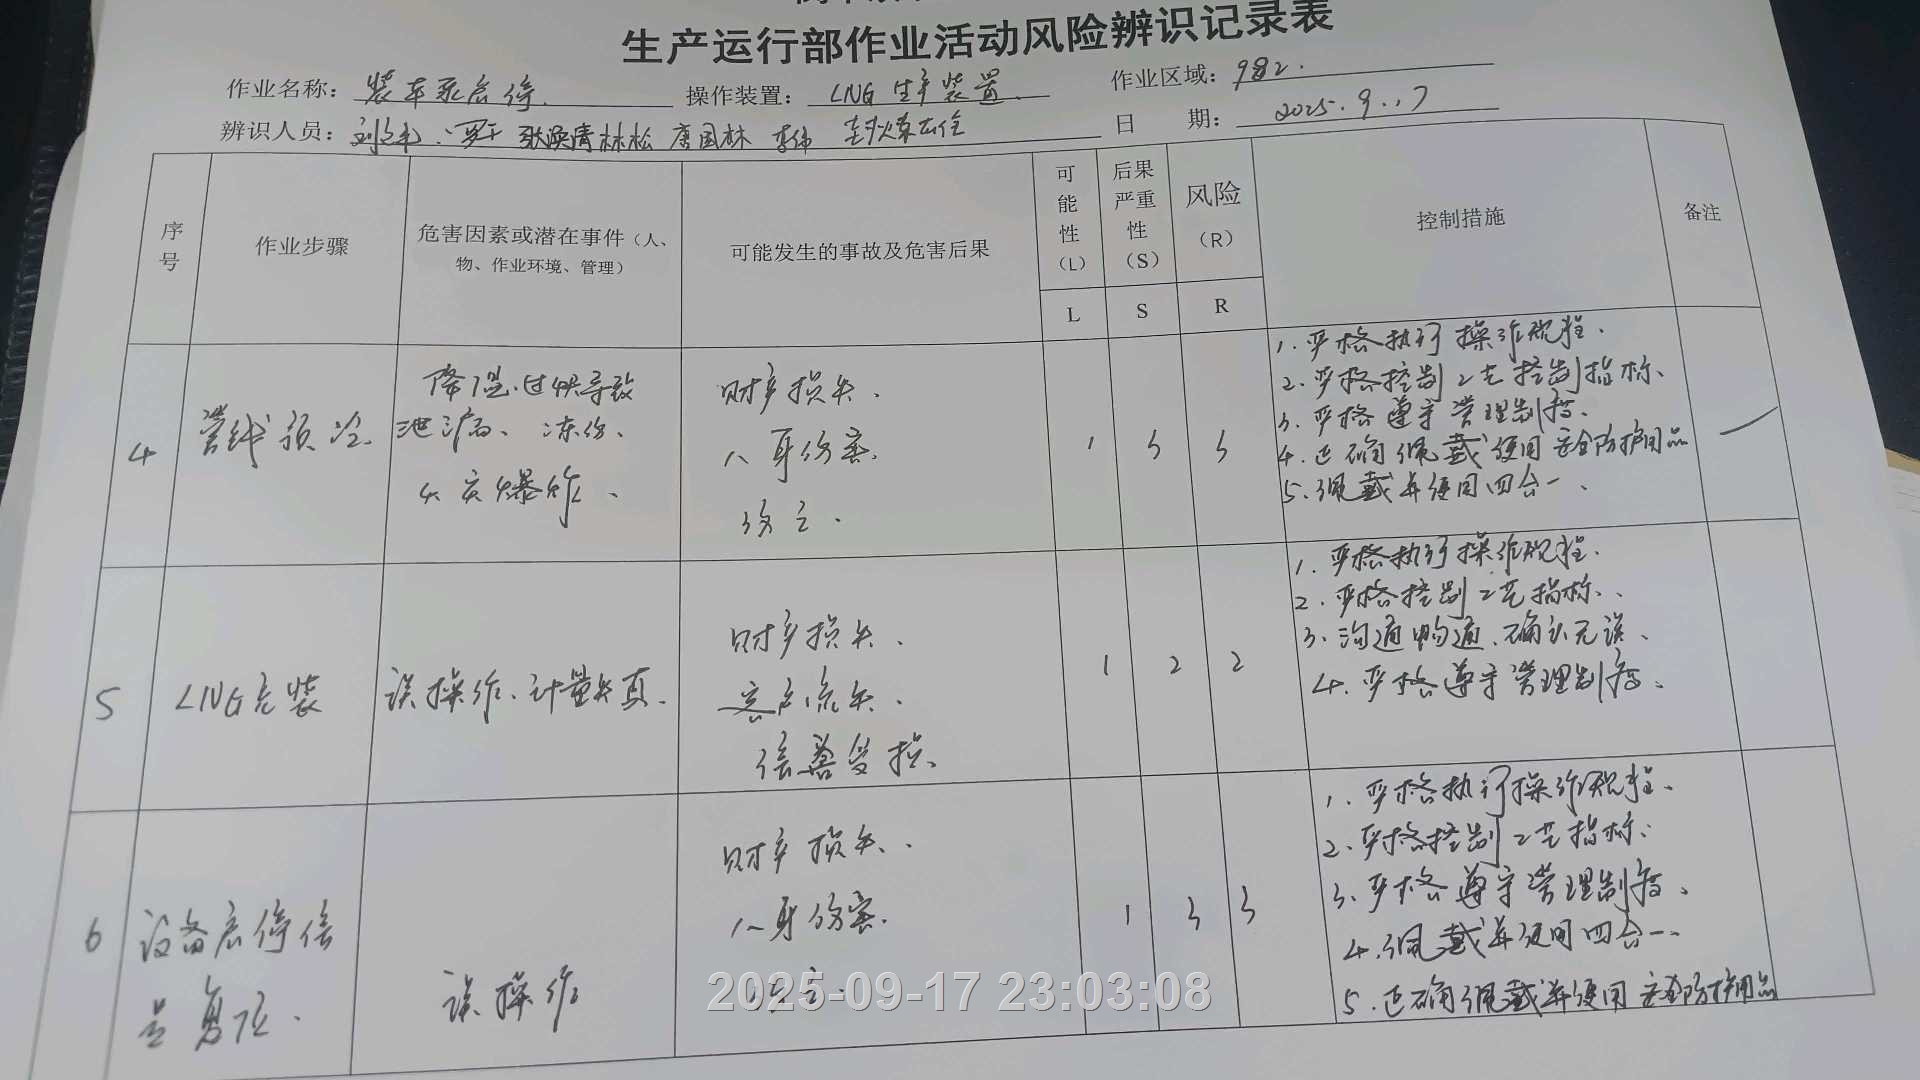 生产运行部作业活动风险辨识记录表
作业名称：装车泵启停. 操作装置：LNG生产装置. 作业区域：982.
辨识人员：张焕清 林松 唐国林 李伟 日 期：2025.9.17
序号 作业步骤 危害因素或潜在事件（人、物、作业环境、管理） 可能发生的事故及危害后果 可能性（L） 后果严重性（S） 风险（R） 控制措施 备注
L S R
4 管线预冷 降温过快导致
泄漏、冻伤、
火灾爆炸、
财产损失.
人身伤害.
伤亡.
1 3 3
1.严格执行操作规程.
2.严格控制工艺控制指标、
3.严格遵守管理制度.
4.正确佩戴使用安全防护用品
5.佩戴并使用四合一、
5 LNG充装 误操作、计量失真.
财产损失.
客户流失.
信誉受损、
1 2 2
1.严格执行操作规程.
2.严格控制工艺指标、
3.沟通畅通、确认无误、
4.严格遵守管理制度、
6 设备启停信
号复位.
误操作
财产损失、.
人身伤害.
伤亡.
1 3 3
1.严格执行操作规程、
2.严格控制工艺指标.
3.严格遵守管理制度、
4.佩戴并使用四合一、
5.正确佩戴并使用安全防护用品
2025-09-17 23:03:08